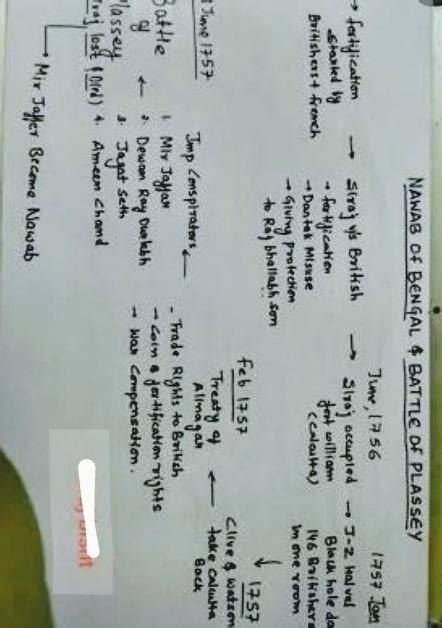 NAWAB OF BENGAL & BATTLE OF PLASSEY
→ fortification
started by
Britishers + french
→ Siraj v/s British
→ fortification
→ Dastak Misuse
→ Giving protection
to Raj bhallabh son
→
June, 1756
Siraj occupied
fort william
(calcutta)
→
1757 Jan
J-Z Halwel
Black hole
146 Britishers
in one room
↓
1757
Clive & Watson
take calcutta
Back
←
Feb 1757
Treaty of
Alinagar
- Trade Rights to British
→ Coin & fortification rights
→ War Compensation.
←
Imp Conspirators
1. Mir Jaffar
2. Dewan Ray Durlabh
3. Jagat Seth
4. Ameen Chand
←
June 1757
Battle
of
Plassey
lost (Died)
→ Mir Jaffer Became Nawab